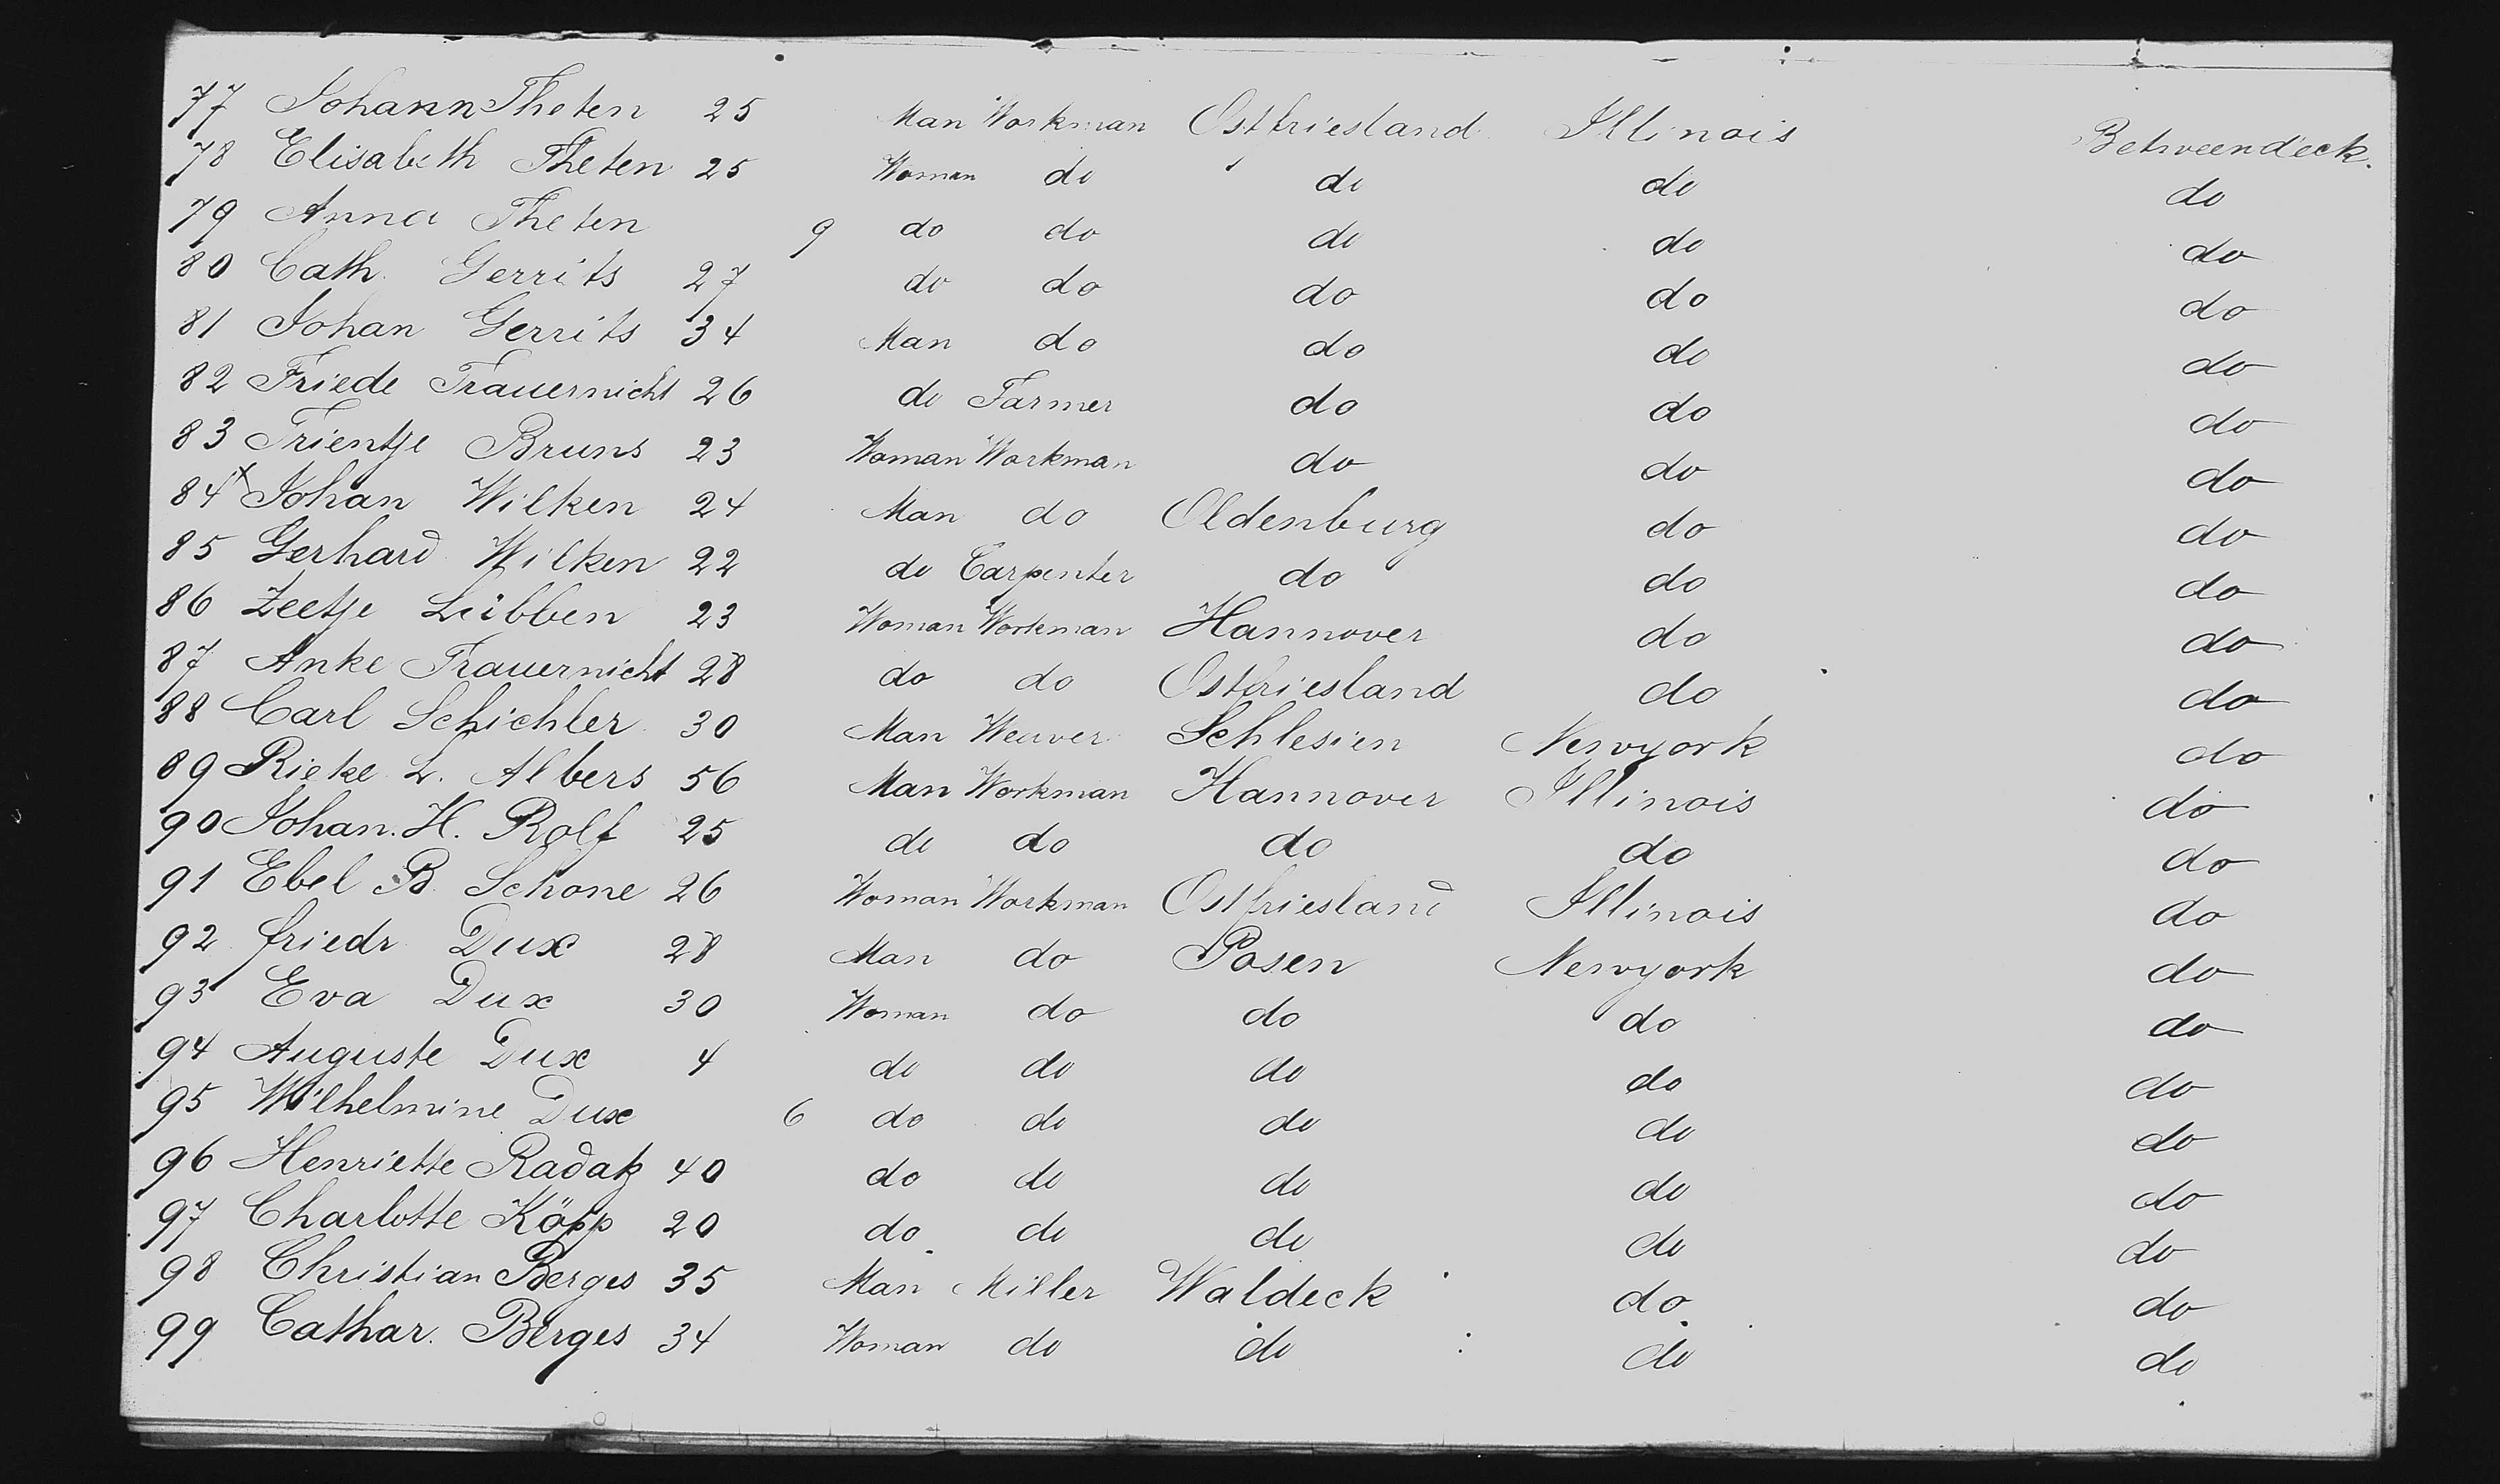 77 Johann Theten 25 Man Workman Ostfriesland Illinois Betweendeck.
78 Elisabeth Theten 25 Woman do do do do
79 Anna Theten 9 do do do do do
80 Cath. Gerrits 27 do do do do do
81 Johan Gerrits 34 Man do do do do
82 Friede Trauernicht 26 do Farmer do do do
83 Trientje Bruns 23 Woman Workman do do do
84 x Johan Wilken 24 Man do Oldenburg do do
85 Gerhard Wilken 22 do Carpenter do do do
86 Zeetje Lübben 23 Woman Workman Hannover do do
87 Anke Trauernicht 28 do do Ostfriesland do do
88 Carl Schichler 30 Man Weaver Schlesien Newyork do
89 Rieke L. Albers 56 Man Workman Hannover Illinois do
90 Johan. H. Rolf 25 do do do do do
91 Ebel B. Schone 26 Woman Workman Ostfriesland Illinois do
92 friedr Dux 28 Man do Posen Newyork do
93 Eva Dux 30 Woman do do do do
94 Auguste Dux 4 do do do do do
95 Wilhelmine Dux 6 do do do do do
96 Henriette Radatz 40 do do do do do
97 Charlotte Köpp 20 do do do do do
98 Christian Berges 35 Man Miller Waldeck do do
99 Cathar. Berges 34 Woman do do do do